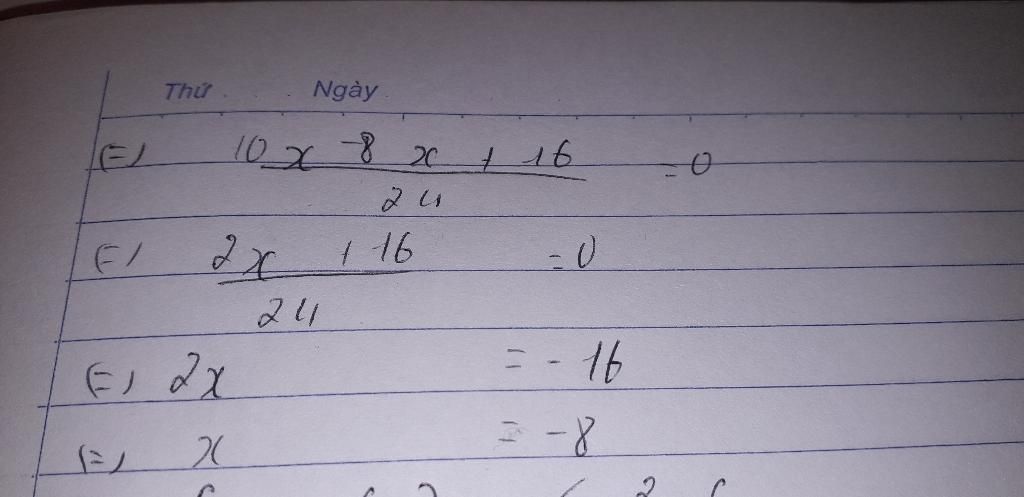 Thứ Ngày
(=) 10x - 8x + 16 = 0
24
(=) 2x + 16 = 0
24
(=) 2x = -16
(=) x = -8